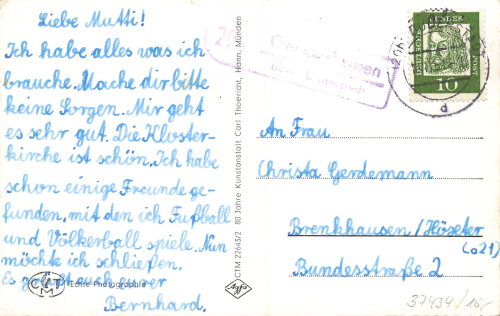 Liebe Mutti!
Ich habe alles was ich
brauche. Mache dir bitte
keine Sorgen. Mir geht
es sehr gut. Die Kloster-
kirche ist schön. Ich habe
schon einige Freunde ge-
funden, mit den ich Fußball
und Völkerball spiele. Nun
möchte ich schließen.
Es grüßt euch euer
Bernhard.
CTM
Echte Photographie
CTM 23643/2 80 Jahre Kunstanstalt Carl Thoericht, Hann. Münden
Agfa
20
über
DEUTSCHE BUNDESPOST
10
d
An Frau
Christa Gerdemann
Brenkhausen/Höxter
(a21)
Bundesstraße 2
37434/10,-